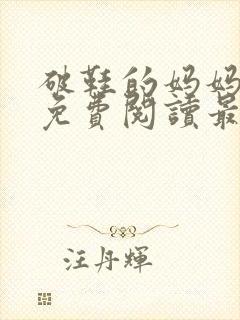 破鞋的妈妈
免費閱讀最
汪丹輝